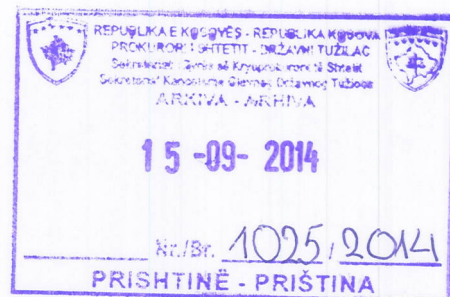 REPUBLIKA E KOSOVËS - REPUBLIKA KOSOVA
PROKURORI I SHTETIT - DRŽAVNI TUŽILAC
Sekretariati i Zyrës së Kryeprokurorit të Shtetit
Sekretariat Kancelarije Glavnog Državnog Tužioca
ARKIVA - ARHIVA
15 -09- 2014
Nr./Br. 1025/2014
PRISHTINË - PRIŠTINA